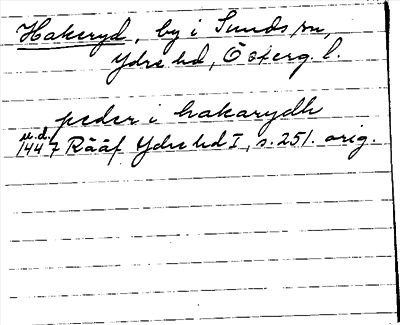 Hakeryd, by i Sunds sn,
Ydre hd, Österg. l.
peder i hakarydh
u.d.
1447 Rääf Ydre hd I, s. 251. orig.